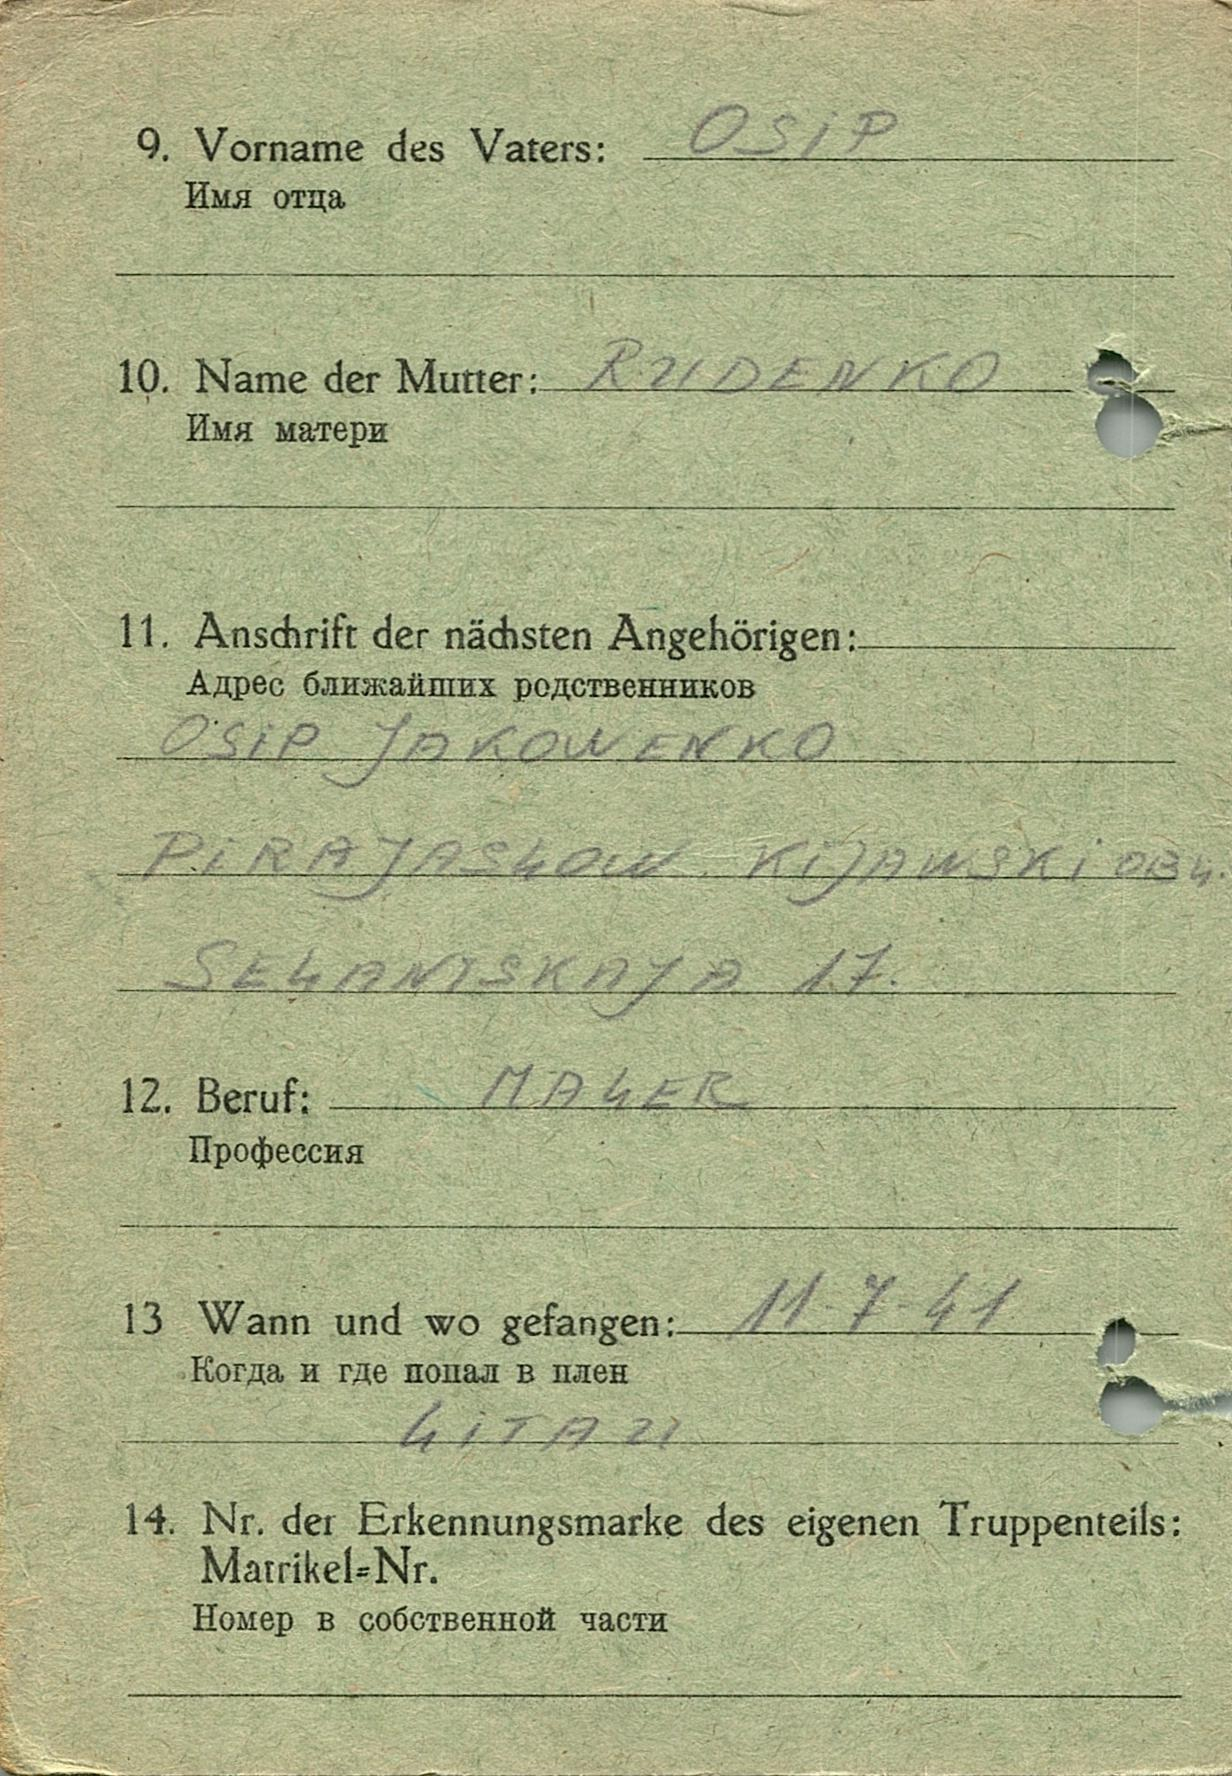 9. Vorname des Vaters: OSIP
Имя отца
10. Name der Mutter: RUDENKO
Имя матери
11. Anschrift der nächsten Angehörigen:
Адрес ближайших родственников
OSIP JAKOWENKO
PIRAJASLOW KIJAWSKI OBL.
SELANTSKAJA 17.
12. Beruf: MALER
Профессия
13 Wann und wo gefangen: 11-7-41
Когда и где попал в плен
LITAU
14. Nr. der Erkennungsmarke des eigenen Truppenteils:
Matrikel=Nr.
Номер в собственной части